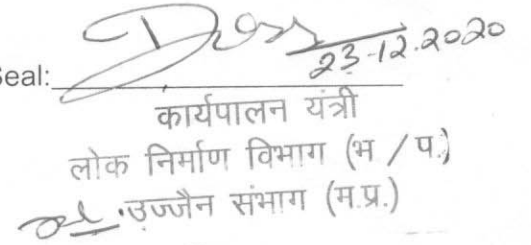 23-12.2020
Seal:
कार्यपालन यंत्री
लोक निर्माण विभाग (भ / प.)
उज्जैन संभाग (म.प्र.)